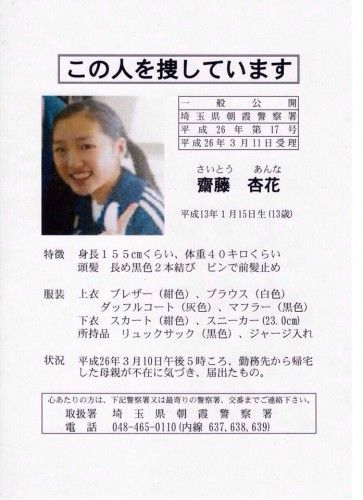 この人を捜しています
一般公開
埼玉県朝霞警察署
平成26年第17号
平成26年3月11日受理
さいとう　あんな
齋藤　杏花
平成13年1月15日生(13歳)
特徴　身長155cmくらい、体重40キロくらい
頭髪　長め黒色2本結び　ピンで前髪止め
服装　上衣　ブレザー(紺色)、ブラウス(白色)
ダッフルコート(灰色)、マフラー(黒色)
下衣　スカート(紺色)、スニーカー(23.0cm)
所持品　リュックサック(黒色)、ジャージ入れ
状況　平成26年3月10日午後5時ころ、勤務先から帰宅
した母親が不在に気づき、届出たもの。
心あたりの方は、下記警察署又は最寄りの警察署、交番までご連絡下さい。
取扱署　埼玉県朝霞警察署
電話　048-465-0110(内線 637,638,639)